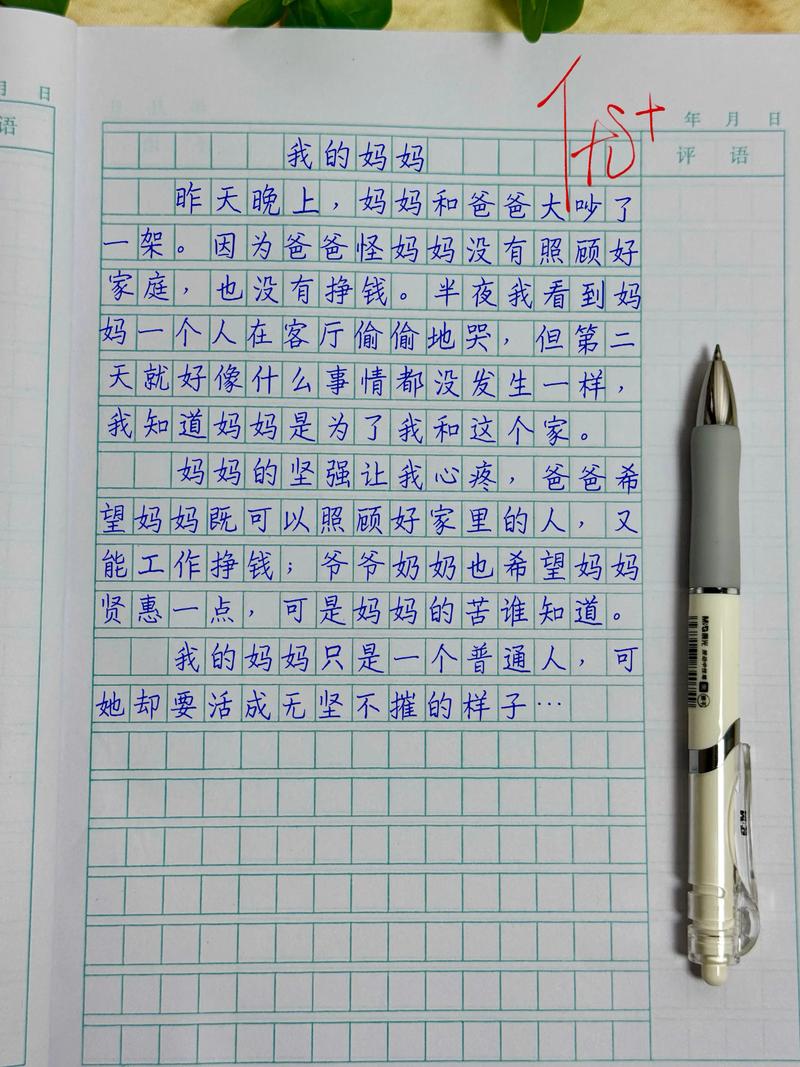 优+
年 月 日
评 语
月 日
语
我的妈妈
昨天晚上，妈妈和爸爸大吵了
一架。因为爸爸怪妈妈没有照顾好
家庭，也没有挣钱。半夜我看到妈
妈一个人在客厅偷偷地哭，但第二
天就好像什么事情都没发生一样，
我知道妈妈是为了我和这个家。
妈妈的坚强让我心疼，爸爸希
望妈妈既可以照顾好家里的人，又
能工作挣钱；爷爷奶奶也希望妈妈
贤惠一点，可是妈妈的苦谁知道。
我的妈妈只是一个普通人，可
她却要活成无坚不摧的样子…
M&G晨光
M&G